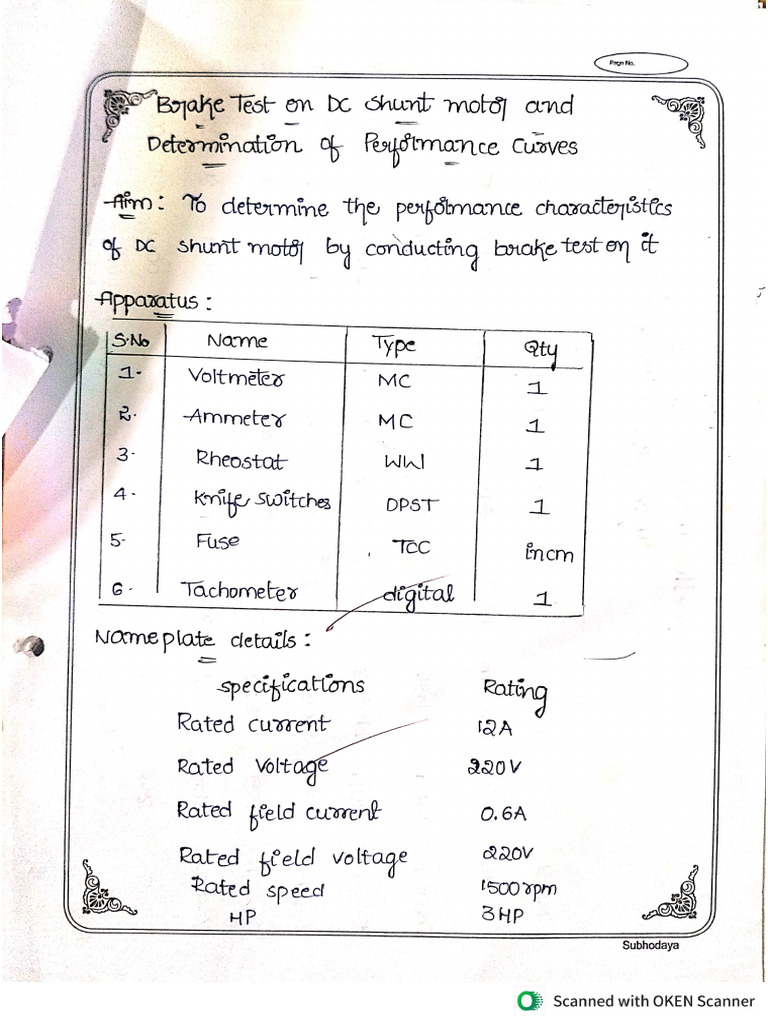 Page No.
Brake Test on DC shunt motor and
Determination of Performance Curves
Aim: To determine the performance characteristics
of DC shunt motor by conducting brake test on it
Apparatus:
S.No Name Type Qty
1. Voltmeter MC 1
2. Ammeter MC 1
3. Rheostat WW 1
4. Knife switches DPST 1
5. Fuse TCC
6. Tachometer digital 1
Name plate details:
specifications Rating
Rated current 12A
Rated Voltage 220V
Rated field current 0.6A
Rated field voltage 220V
Rated speed 1500rpm
HP 3HP
Subhodaya
Scanned with OKEN Scanner